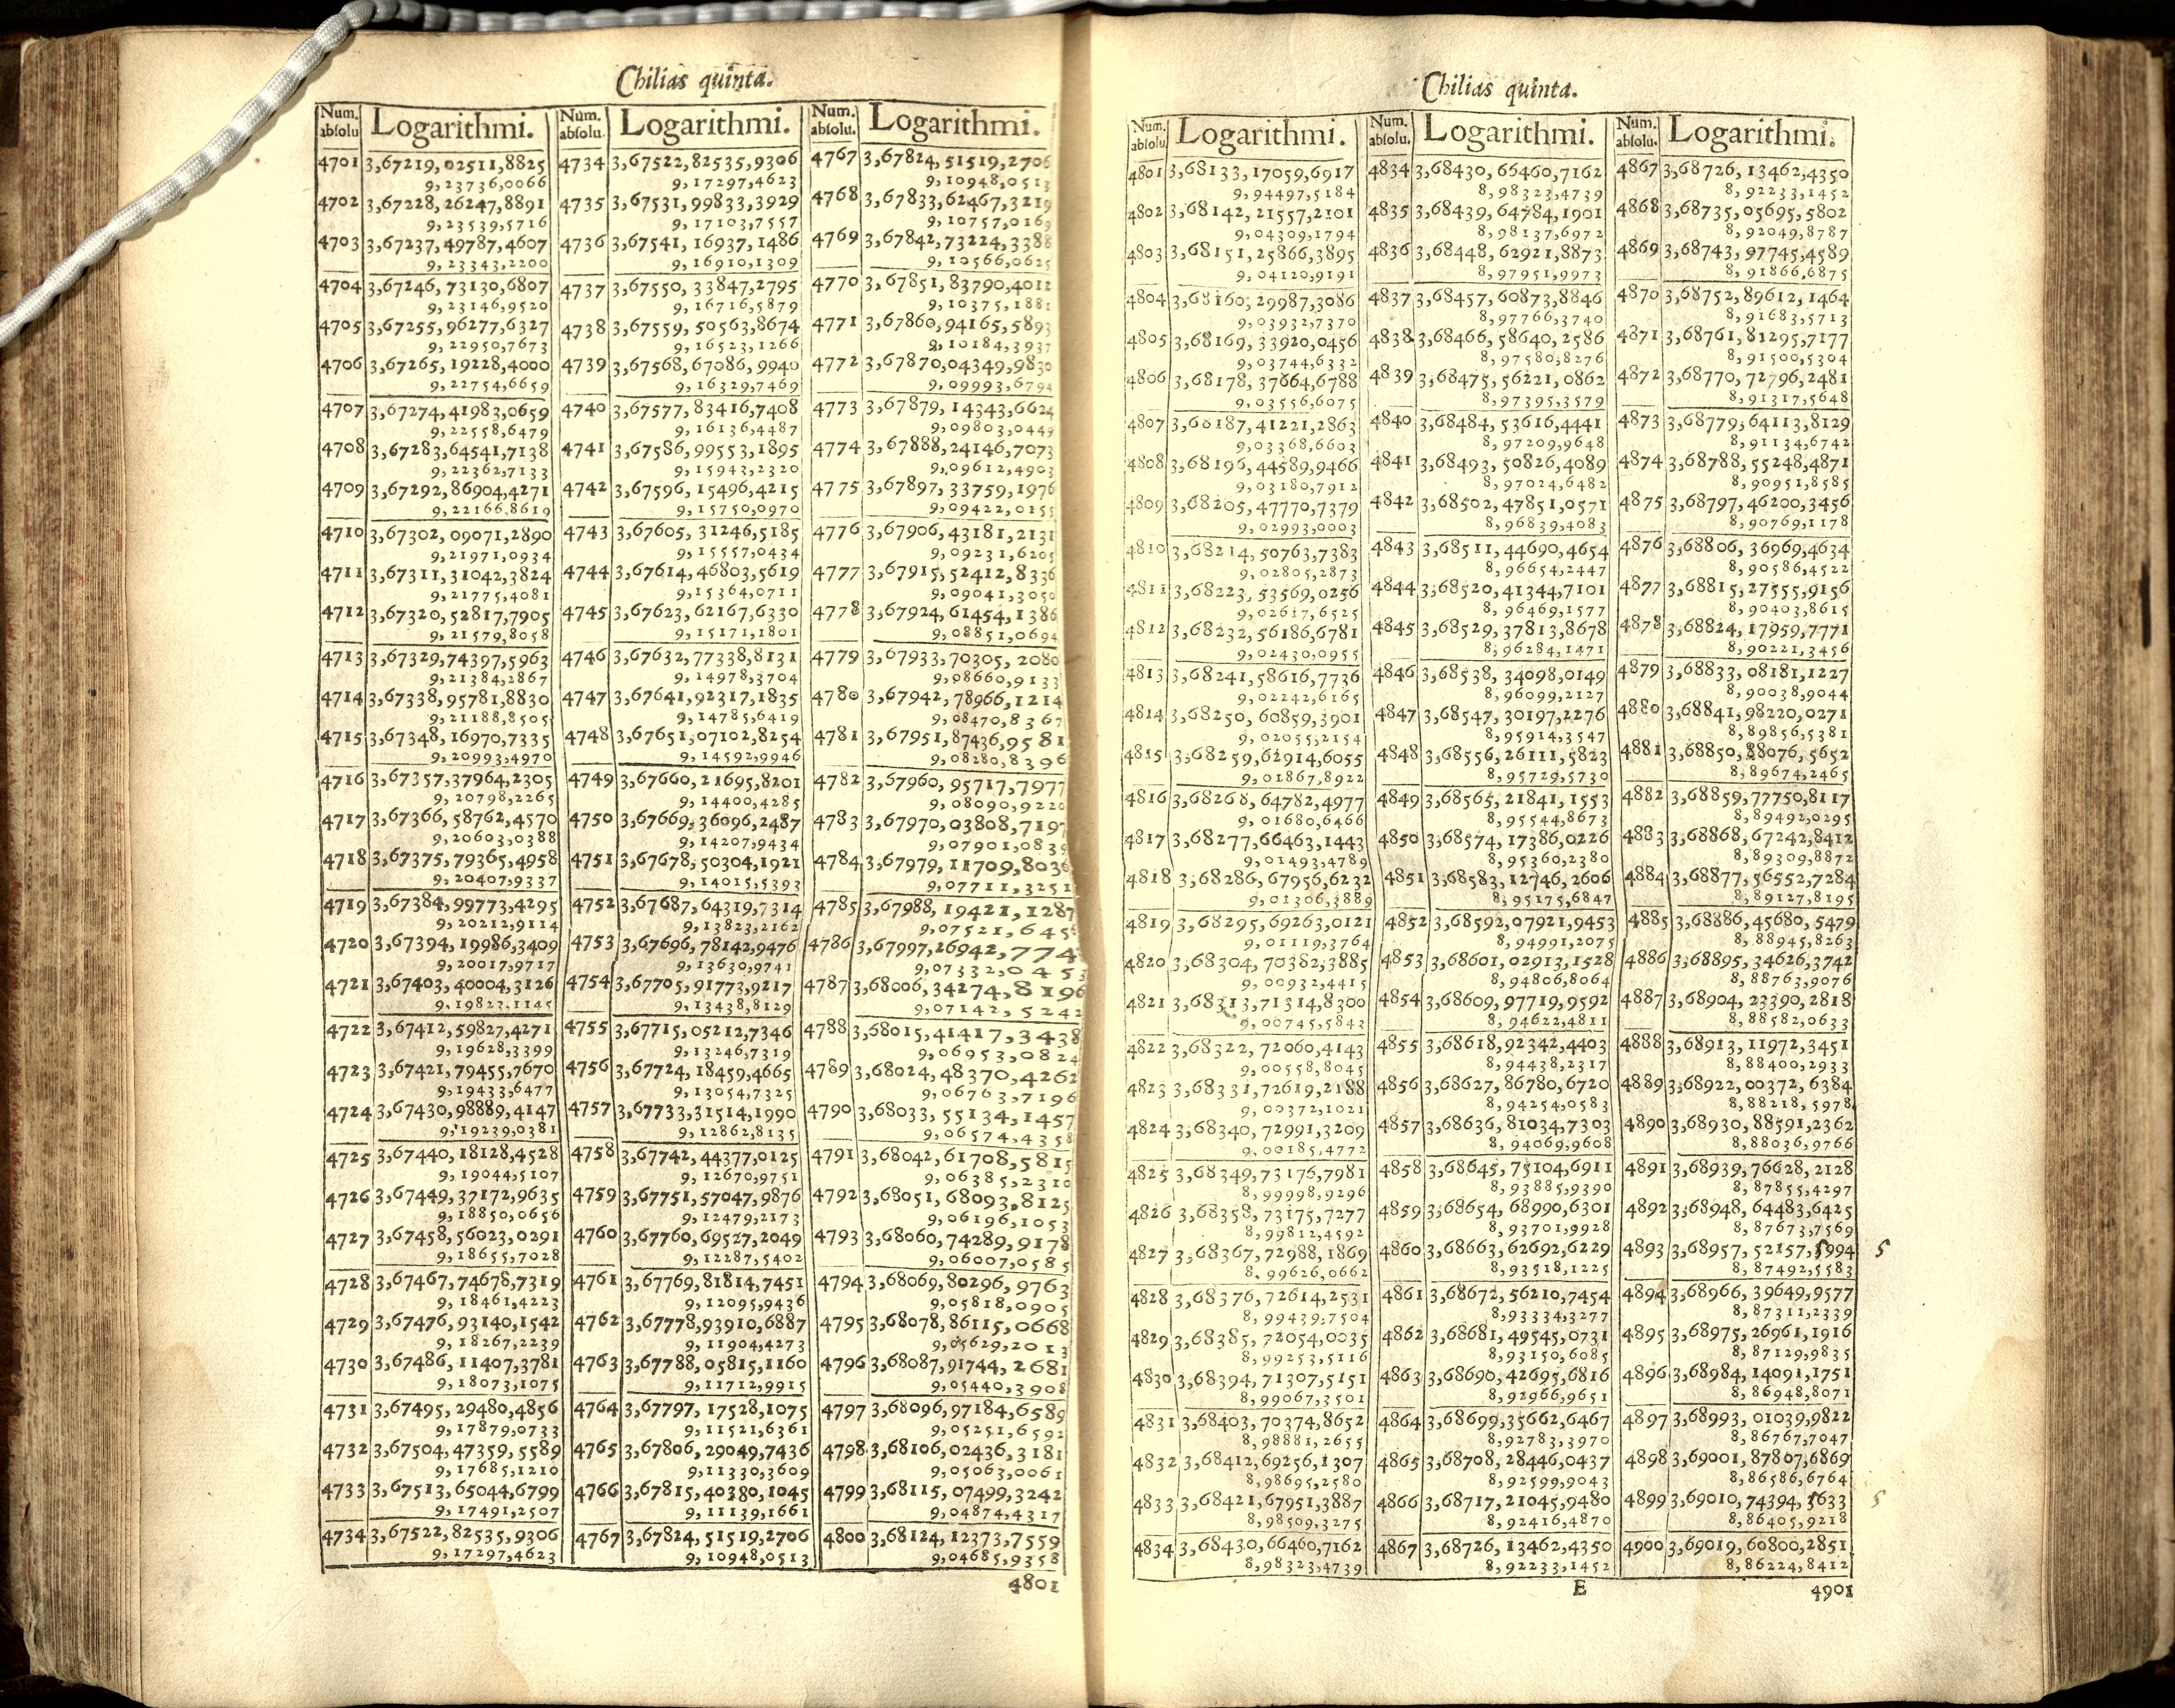 Chilias quinta.
Num. absolu
Logarithmi.
4701 3,67219,02511,8825
9,23736,0066
4702 3,67228,26247,8891
9,23539,5716
4703 3,67237,49787,4607
9,23343,2200
4704 3,67246,73130,6807
9,23146,9520
4705 3,67255,96277,6327
9,22950,7673
4706 3,67265,19228,4000
9,22754,6659
4707 3,67274,41983,0659
9,22558,6479
4708 3,67283,64541,7138
9,22362,7133
4709 3,67292,86904,4271
9,22166,8619
4710 3,67302,09071,2890
9,21971,0934
4711 3,67311,31042,3824
9,21775,4081
4712 3,67320,52817,7905
9,21579,8058
4713 3,67329,74397,5963
9,21384,2867
4714 3,67338,95781,8830
9,21188,8505
4715 3,67348,16970,7335
9,20993,4970
4716 3,67357,37964,2305
9,20798,2265
4717 3,67366,58762,4570
9,20603,0388
4718 3,67375,79365,4958
9,20407,9337
4719 3,67384,99773,4295
9,20212,9114
4720 3,67394,19986,3409
9,20017,9717
4721 3,67403,40004,3126
9,19823,1145
4722 3,67412,59827,4271
9,19628,3399
4723 3,67421,79455,7670
9,19433,6477
4724 3,67430,98889,4147
9,19239,0381
4725 3,67440,18128,4528
9,19044,5107
4726 3,67449,37172,9635
9,18850,0656
4727 3,67458,56023,0291
9,18655,7028
4728 3,67467,74678,7319
9,18461,4223
4729 3,67476,93140,1542
9,18267,2239
4730 3,67486,11407,3781
9,18073,1075
4731 3,67495,29480,4856
9,17879,0733
4732 3,67504,47359,5589
9,17685,1210
4733 3,67513,65044,6799
9,17491,2507
4734 3,67522,82535,9306
9,17297,4623
Num. absolu.
Logarithmi.
4734 3,67522,82535,9306
9,17297,4623
4735 3,67531,99833,3929
9,17103,7557
4736 3,67541,16937,1486
9,16910,1309
4737 3,67550,33847,2795
9,16716,5879
4738 3,67559,50563,8674
9,16523,1266
4739 3,67568,67086,9940
9,16329,7469
4740 3,67577,83416,7408
9,16136,4487
4741 3,67586,99553,1895
9,15943,2320
4742 3,67596,15496,4215
9,15750,0970
4743 3,67605,31246,5185
9,15557,0434
4744 3,67614,46803,5619
9,15364,0711
4745 3,67623,62167,6330
9,15171,1801
4746 3,67632,77338,8131
9,14978,3704
4747 3,67641,92317,1835
9,14785,6419
4748 3,67651,07102,8254
9,14592,9946
4749 3,67660,21695,8201
9,14400,4285
4750 3,67669,36096,2487
9,14207,9434
4751 3,67678,50304,1921
9,14015,5393
4752 3,67687,64319,7314
9,13823,2162
4753 3,67696,78142,9476
9,13630,9741
4754 3,67705,91773,9217
9,13438,8129
4755 3,67715,05212,7346
9,13246,7319
4756 3,67724,18459,4665
9,13054,7325
4757 3,67733,31514,1990
9,12862,8135
4758 3,67742,44377,0125
9,12670,9751
4759 3,67751,57047,9876
9,12479,2173
4760 3,67760,69527,2049
9,12287,5402
4761 3,67769,81814,7451
9,12095,9436
4762 3,67778,93910,6887
9,11904,4273
4763 3,67788,05815,1160
9,11712,9915
4764 3,67797,17528,1075
9,11521,6361
4765 3,67806,29049,7436
9,11330,3609
4766 3,67815,40380,1045
9,11139,1661
4767 3,67824,51519,2706
9,10948,0513
Num. absolu.
Logarithmi.
4767 3,67824,51519,2706
9,10948,0513
4768 3,67833,62467,3219
9,10757,0169
4769 3,67842,73224,3388
9,10566,0625
4770 3,67851,83790,4012
9,10375,1881
4771 3,67860,94165,5893
9,10184,3937
4772 3,67870,04349,9830
9,09993,6794
4773 3,67879,14343,6624
9,09803,0449
4774 3,67888,24146,7073
9,09612,4903
4775 3,67897,33759,1976
9,09422,0155
4776 3,67906,43181,2131
9,09231,6205
4777 3,67915,52412,8336
9,09041,3050
4778 3,67924,61454,1386
9,08851,0694
4779 3,67933,70305,2080
9,08660,9133
4780 3,67942,78966,1214
9,08470,8367
4781 3,67951,87436,9581
9,08280,8396
4782 3,67960,95717,7977
9,08090,9220
4783 3,67970,03808,7197
9,07901,0839
4784 3,67979,11709,8036
9,07711,3251
4785 3,67988,19421,1287
9,07521,6456
4786 3,67997,26942,774
9,07332,0453
4787 3,68006,34274,8196
9,07142,5242
4788 3,68015,41417,3438
9,06953,0824
4789 3,68024,48370,4262
9,06763,7196
4790 3,68033,55134,1457
9,06574,4358
4791 3,68042,61708,5815
9,06385,2310
4792 3,68051,68093,8125
9,06196,1053
4793 3,68060,74289,9178
9,06007,0585
4794 3,68069,80296,9763
9,05818,0905
4795 3,68078,86115,0668
9,05629,2013
4796 3,68087,91744,2681
9,05440,3908
4797 3,68096,97184,6589
9,05251,6592
4798 3,68106,02436,3181
9,05063,0061
4799 3,68115,07499,3242
9,04874,4317
4800 3,68124,12373,7559
9,04685,9358
4801
Chilias quinta.
Num. absolu
Logarithmi.
4801 3,68133,17059,6917
9,94497,5184
4802 3,68142,21557,2101
9,04309,1794
4803 3,68151,25866,3895
9,04120,9191
4804 3,68160,29987,3086
9,03932,7370
4805 3,68169,33920,0456
9,03744,6332
4806 3,68178,37664,6788
9,03556,6075
4807 3,68187,41221,2863
9,03368,6603
4808 3,68196,44589,9466
9,03180,7912
4809 3,68205,47770,7379
9,02993,0003
4810 3,68214,50763,7383
9,02805,2873
4811 3,68223,53569,0256
9,02617,6525
4812 3,68232,56186,6781
9,02430,0955
4813 3,68241,58616,7736
9,02242,6165
4814 3,68250,60859,3901
9,02055,2154
4815 3,68259,62914,6055
9,01867,8922
4816 3,68268,64782,4977
9,01680,6466
4817 3,68277,66463,1443
9,01493,4789
4818 3,68286,67956,6232
9,01306,3889
4819 3,68295,69263,0121
9,01119,3764
4820 3,68304,70382,3885
9,00932,4415
4821 3,68313,71314,8300
9,00745,5843
4822 3,68322,72060,4143
9,00558,8045
4823 3,68331,72619,2188
9,00372,1021
4824 3,68340,72991,3209
9,00185,4772
4825 3,68349,73176,7981
8,99998,9296
4826 3,68358,73175,7277
8,99812,4592
4827 3,68367,72988,1869
8,99626,0662
4828 3,68376,72614,2531
8,99439,7504
4829 3,68385,72054,0035
8,99253,5116
4830 3,68394,71307,5151
8,99067,3501
4831 3,68403,70374,8652
8,98881,2655
4832 3,68412,69256,1307
8,98695,2580
4833 3,68421,67951,3887
8,98509,3275
4834 3,68430,66460,7162
8,98323,4739
Num. absolu.
Logarithmi.
4834 3,68430,66460,7162
8,98323,4739
4835 3,68439,64784,1901
8,98137,6972
4836 3,68448,62921,8873
8,97951,9973
4837 3,68457,60873,8846
8,97766,3740
4838 3,68466,58640,2586
8,97580,8276
4839 3,68475,56221,0862
8,97395,3579
4840 3,68484,53616,4441
8,97209,9648
4841 3,68493,50826,4089
8,97024,6482
4842 3,68502,47851,0571
8,96839,4083
4843 3,68511,44690,4654
8,96654,2447
4844 3,68520,41344,7101
8,96469,1577
4845 3,68529,37813,8678
8,96284,1471
4846 3,68538,34098,0149
8,96099,2127
4847 3,68547,30197,2276
8,95914,3547
4848 3,68556,26111,5823
8,95729,5730
4849 3,68565,21841,1553
8,95544,8673
4850 3,68574,17386,0226
8,95360,2380
4851 3,68583,12746,2606
8,95175,6847
4852 3,68592,07921,9453
8,94991,2075
4853 3,68601,02913,1528
8,94806,8064
4854 3,68609,97719,9592
8,94622,4811
4855 3,68618,92342,4403
8,94438,2317
4856 3,68627,86780,6720
8,94254,0583
4857 3,68636,81034,7303
8,94069,9608
4858 3,68645,75104,6911
8,93885,9390
4859 3,68654,68990,6301
8,93701,9928
4860 3,68663,62692,6229
8,93518,1225
4861 3,68672,56210,7454
8,93334,3277
4862 3,68681,49545,0731
8,93150,6085
4863 3,68690,42695,6816
8,92966,9651
4864 3,68699,35662,6467
8,92783,3970
4865 3,68708,28446,0437
8,92599,9043
4866 3,68717,21045,9480
8,92416,4870
4867 3,68726,13462,4350
8,92233,1452
Num. absolu.
Logarithmi.
4867 3,68726,13462,4350
8,92233,1452
4868 3,68735,05695,5802
8,92049,8787
4869 3,68743,97745,4589
8,91866,6875
4870 3,68752,89612,1464
8,91683,5713
4871 3,68761,81295,7177
8,91500,5304
4872 3,68770,72796,2481
8,91317,5648
4873 3,68779,64113,8129
8,91134,6742
4874 3,68788,55248,4871
8,90951,8585
4875 3,68797,46200,3456
8,90769,1178
4876 3,68806,36969,4634
8,90586,4522
4877 3,68815,27555,9156
8,90403,8615
4878 3,68824,17959,7771
8,90221,3456
4879 3,68833,08181,1227
8,90038,9044
4880 3,68841,98220,0271
8,89856,5381
4881 3,68850,88076,5652
8,89674,2465
4882 3,68859,77750,8117
8,89492,0295
4883 3,68868,67242,8412
8,89309,8872
4884 3,68877,56552,7284
8,89127,8195
4885 3,68886,45680,5479
8,88945,8263
4886 3,68895,34626,3742
8,88763,9076
4887 3,68904,23390,2818
8,88582,0633
4888 3,68913,11972,3451
8,88400,2933
4889 3,68922,00372,6384
8,88218,5978
4890 3,68930,88591,2362
8,88036,9766
4891 3,68939,76628,2128
8,87855,4297
4892 3,68948,64483,6425
8,87673,7569
4893 3,68957,52157,5994 5
8,87492,5583
4894 3,68966,39649,9577
8,87311,2339
4895 3,68975,26961,1916
8,87129,9835
4896 3,68984,14091,1751
8,86948,8071
4897 3,68993,01039,9822
8,86767,7047
4898 3,69001,87807,6869
8,86586,6764
4899 3,69010,74394,3633 5
8,86405,9218
4900 3,69019,60800,2851
8,86224,8412
E
4901